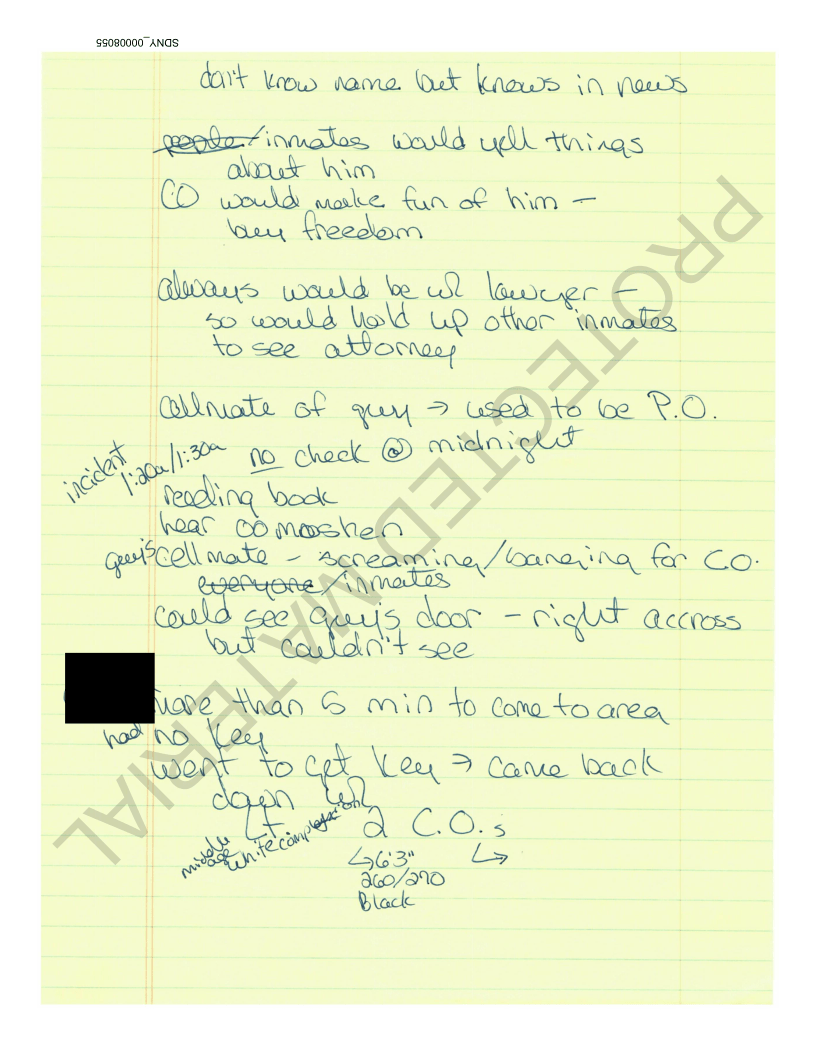 SDNY_00008055
don't know name but knows in news
people/inmates would yell things
about him
CO would make fun of him –
buy freedom
always would be w/ lawyer –
so would hold up other inmates
to see attorney
cellmate of guy → used to be P.O.
incident
1:20a/1:30a no check @ midnight
reading book
hear
guy's cellmate – screaming/banging for C.O.
everyone/inmates
could see guy's door – right accross
but couldn't see
more than 5 min to come to area
had no key
went to get key → came back
down w/
↳ 2 C.O.s
middle age white complexion
↳ 6'3" ↳
260/270
Black
PROTECTED MATERIAL